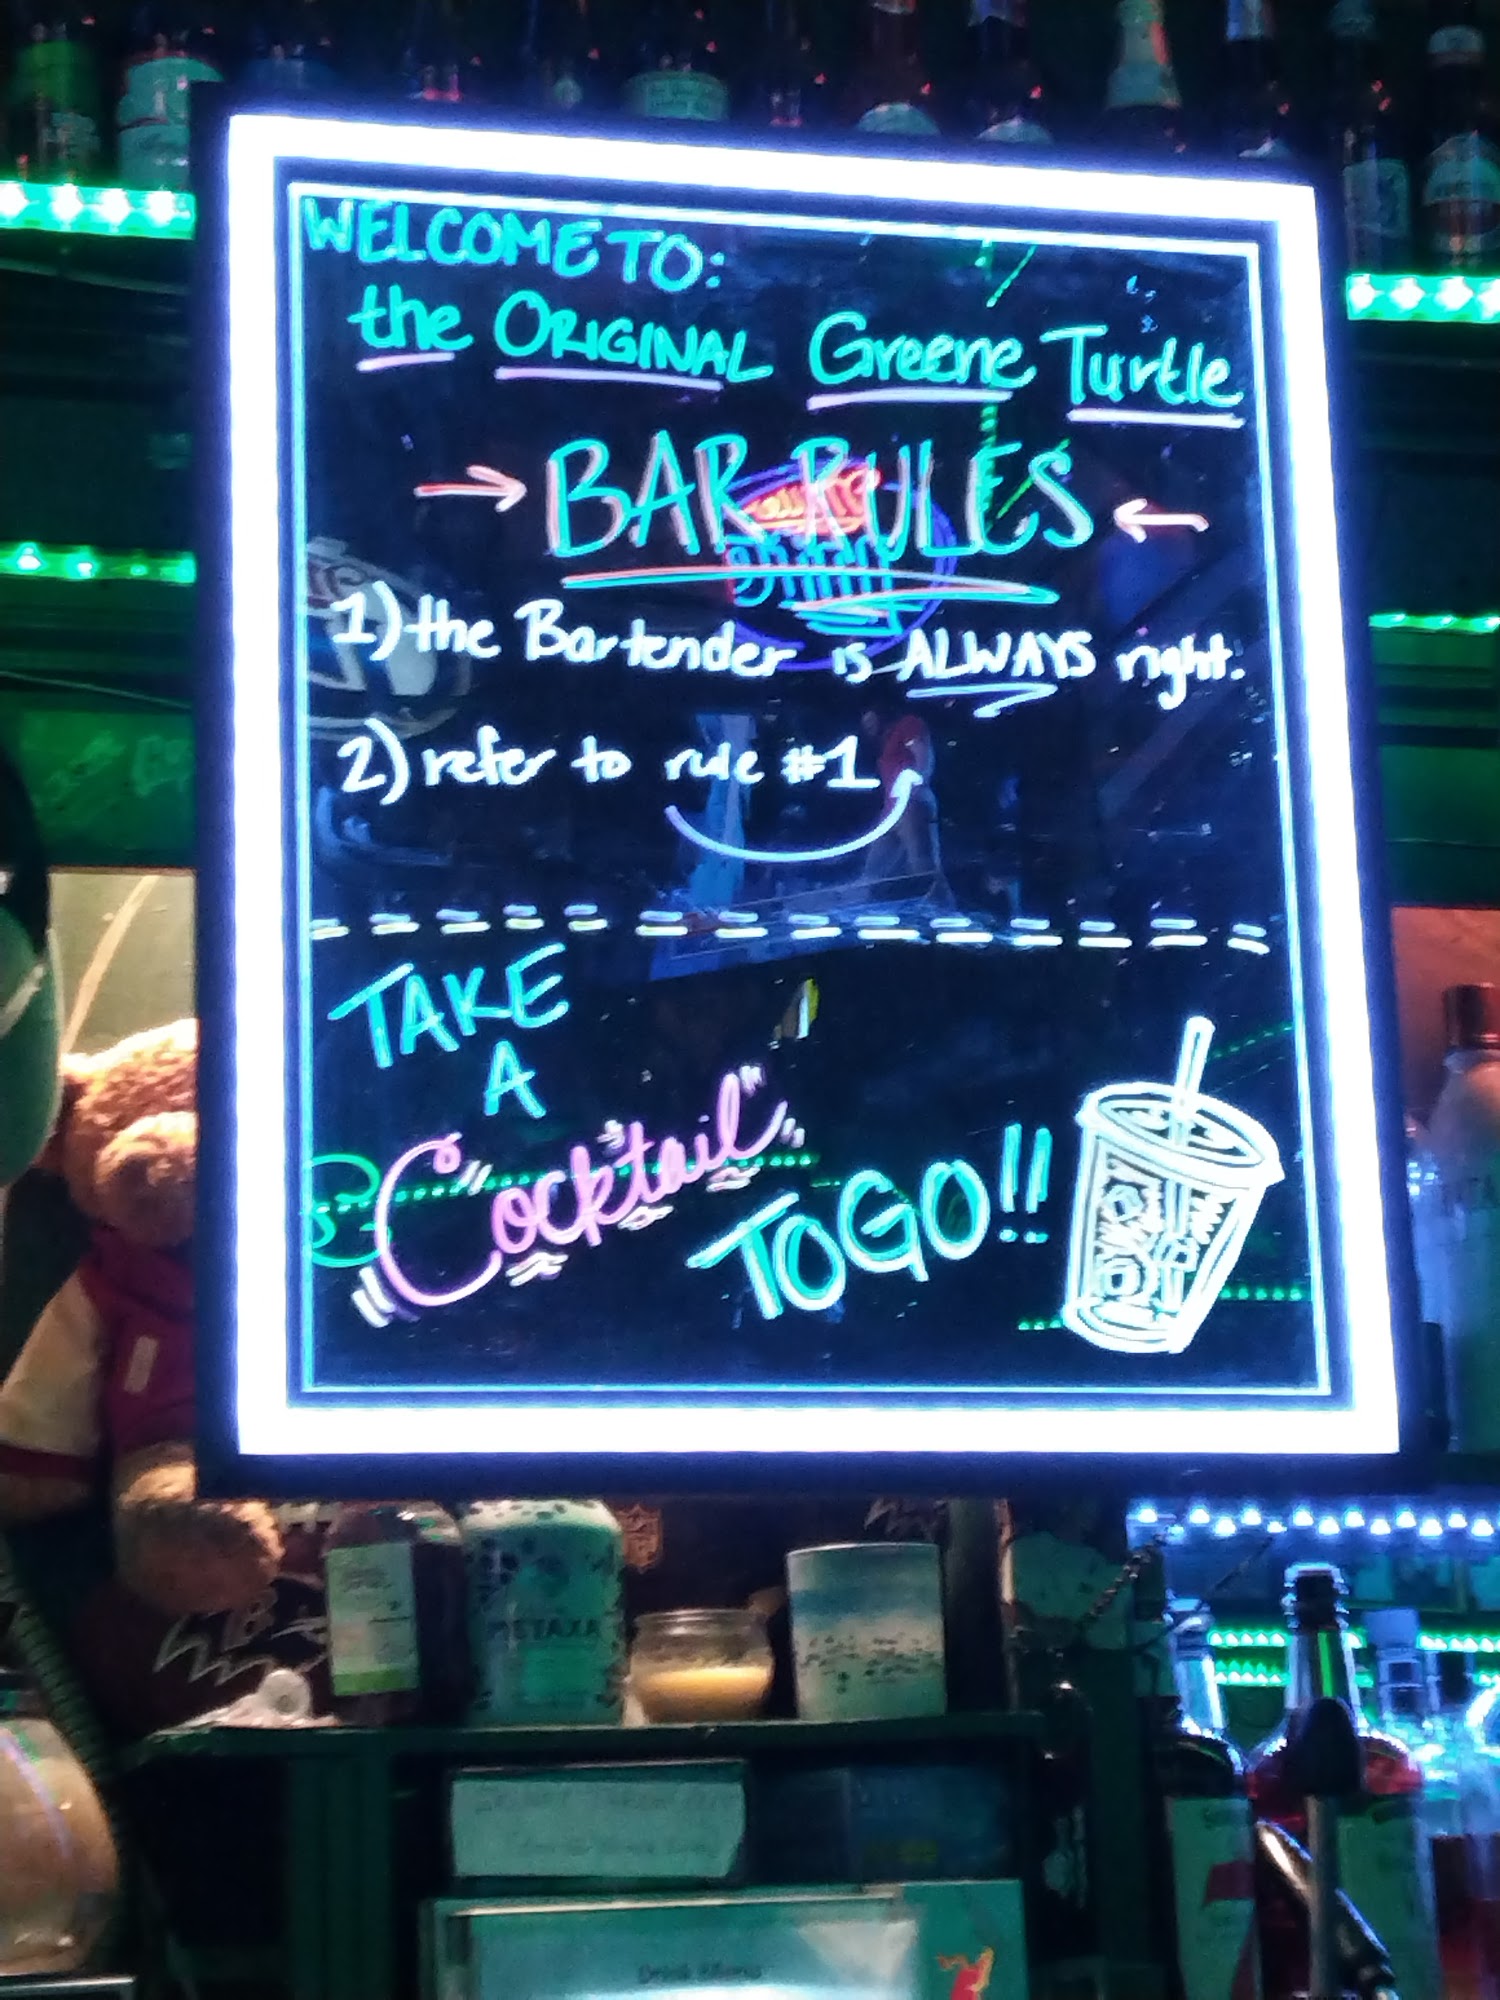 WELCOME TO:
the ORIGINAL Greene Turtle
BAR RULES
1) the Bartender is ALWAYS right.
2) refer to rule #1
TAKE
A
Cocktail
TO GO!!
METAXA
Drink Menu